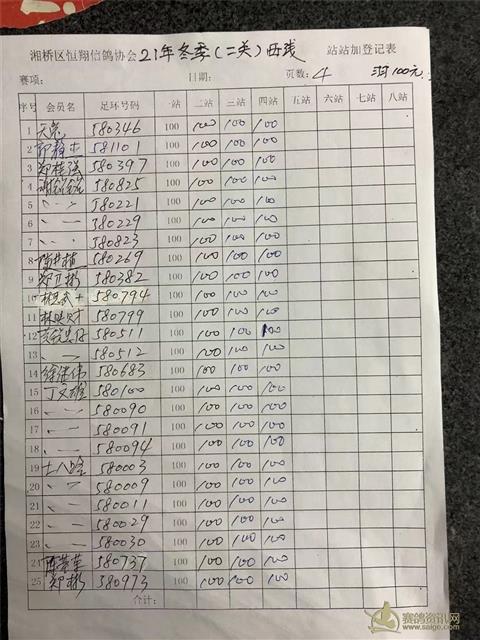 湘桥区恒翔信鸽协会 21年冬季(二关)西线 站站加登记表
赛项: 日期: 页数: 4 100元
序号 会员名 足环号码 一站 二站 三站 四站 五站 六站 七站 八站
1 580346 100 100 100 100
2 581101 100 100 100 100
3 郑桂强 580397 100 100 100 100
4 580825 100 100 100 100
5 580221 100 100 100 100
6 580229 100 100 100 100
7 580823 100 100 100 100
8 580269 100 100 100 100
9 郑卫彬 580382 100 100 100 100
10 580794 100 100 100 100
11 580799 100 100 100 100
12 580511 100 100 100 100
13 580512 100 100 100 100
14 徐继伟 580683 100 100 100 100
15 丁文雄 580100 100 100 100 100
16 580090 100 100 100 100
17 580091 100 100 100 100
18 580094 100 100 100 100
19 580003 100 100 100 100
20 580009 100 100 100 100
21 580011 100 100 100 100
22 580029 100 100 100 100
23 580030 100 100 100 100
24 580737 100 100 100 100
25 郑彬 580973 100 100 100 100
合计:
赛鸽资讯网
www.saige.com